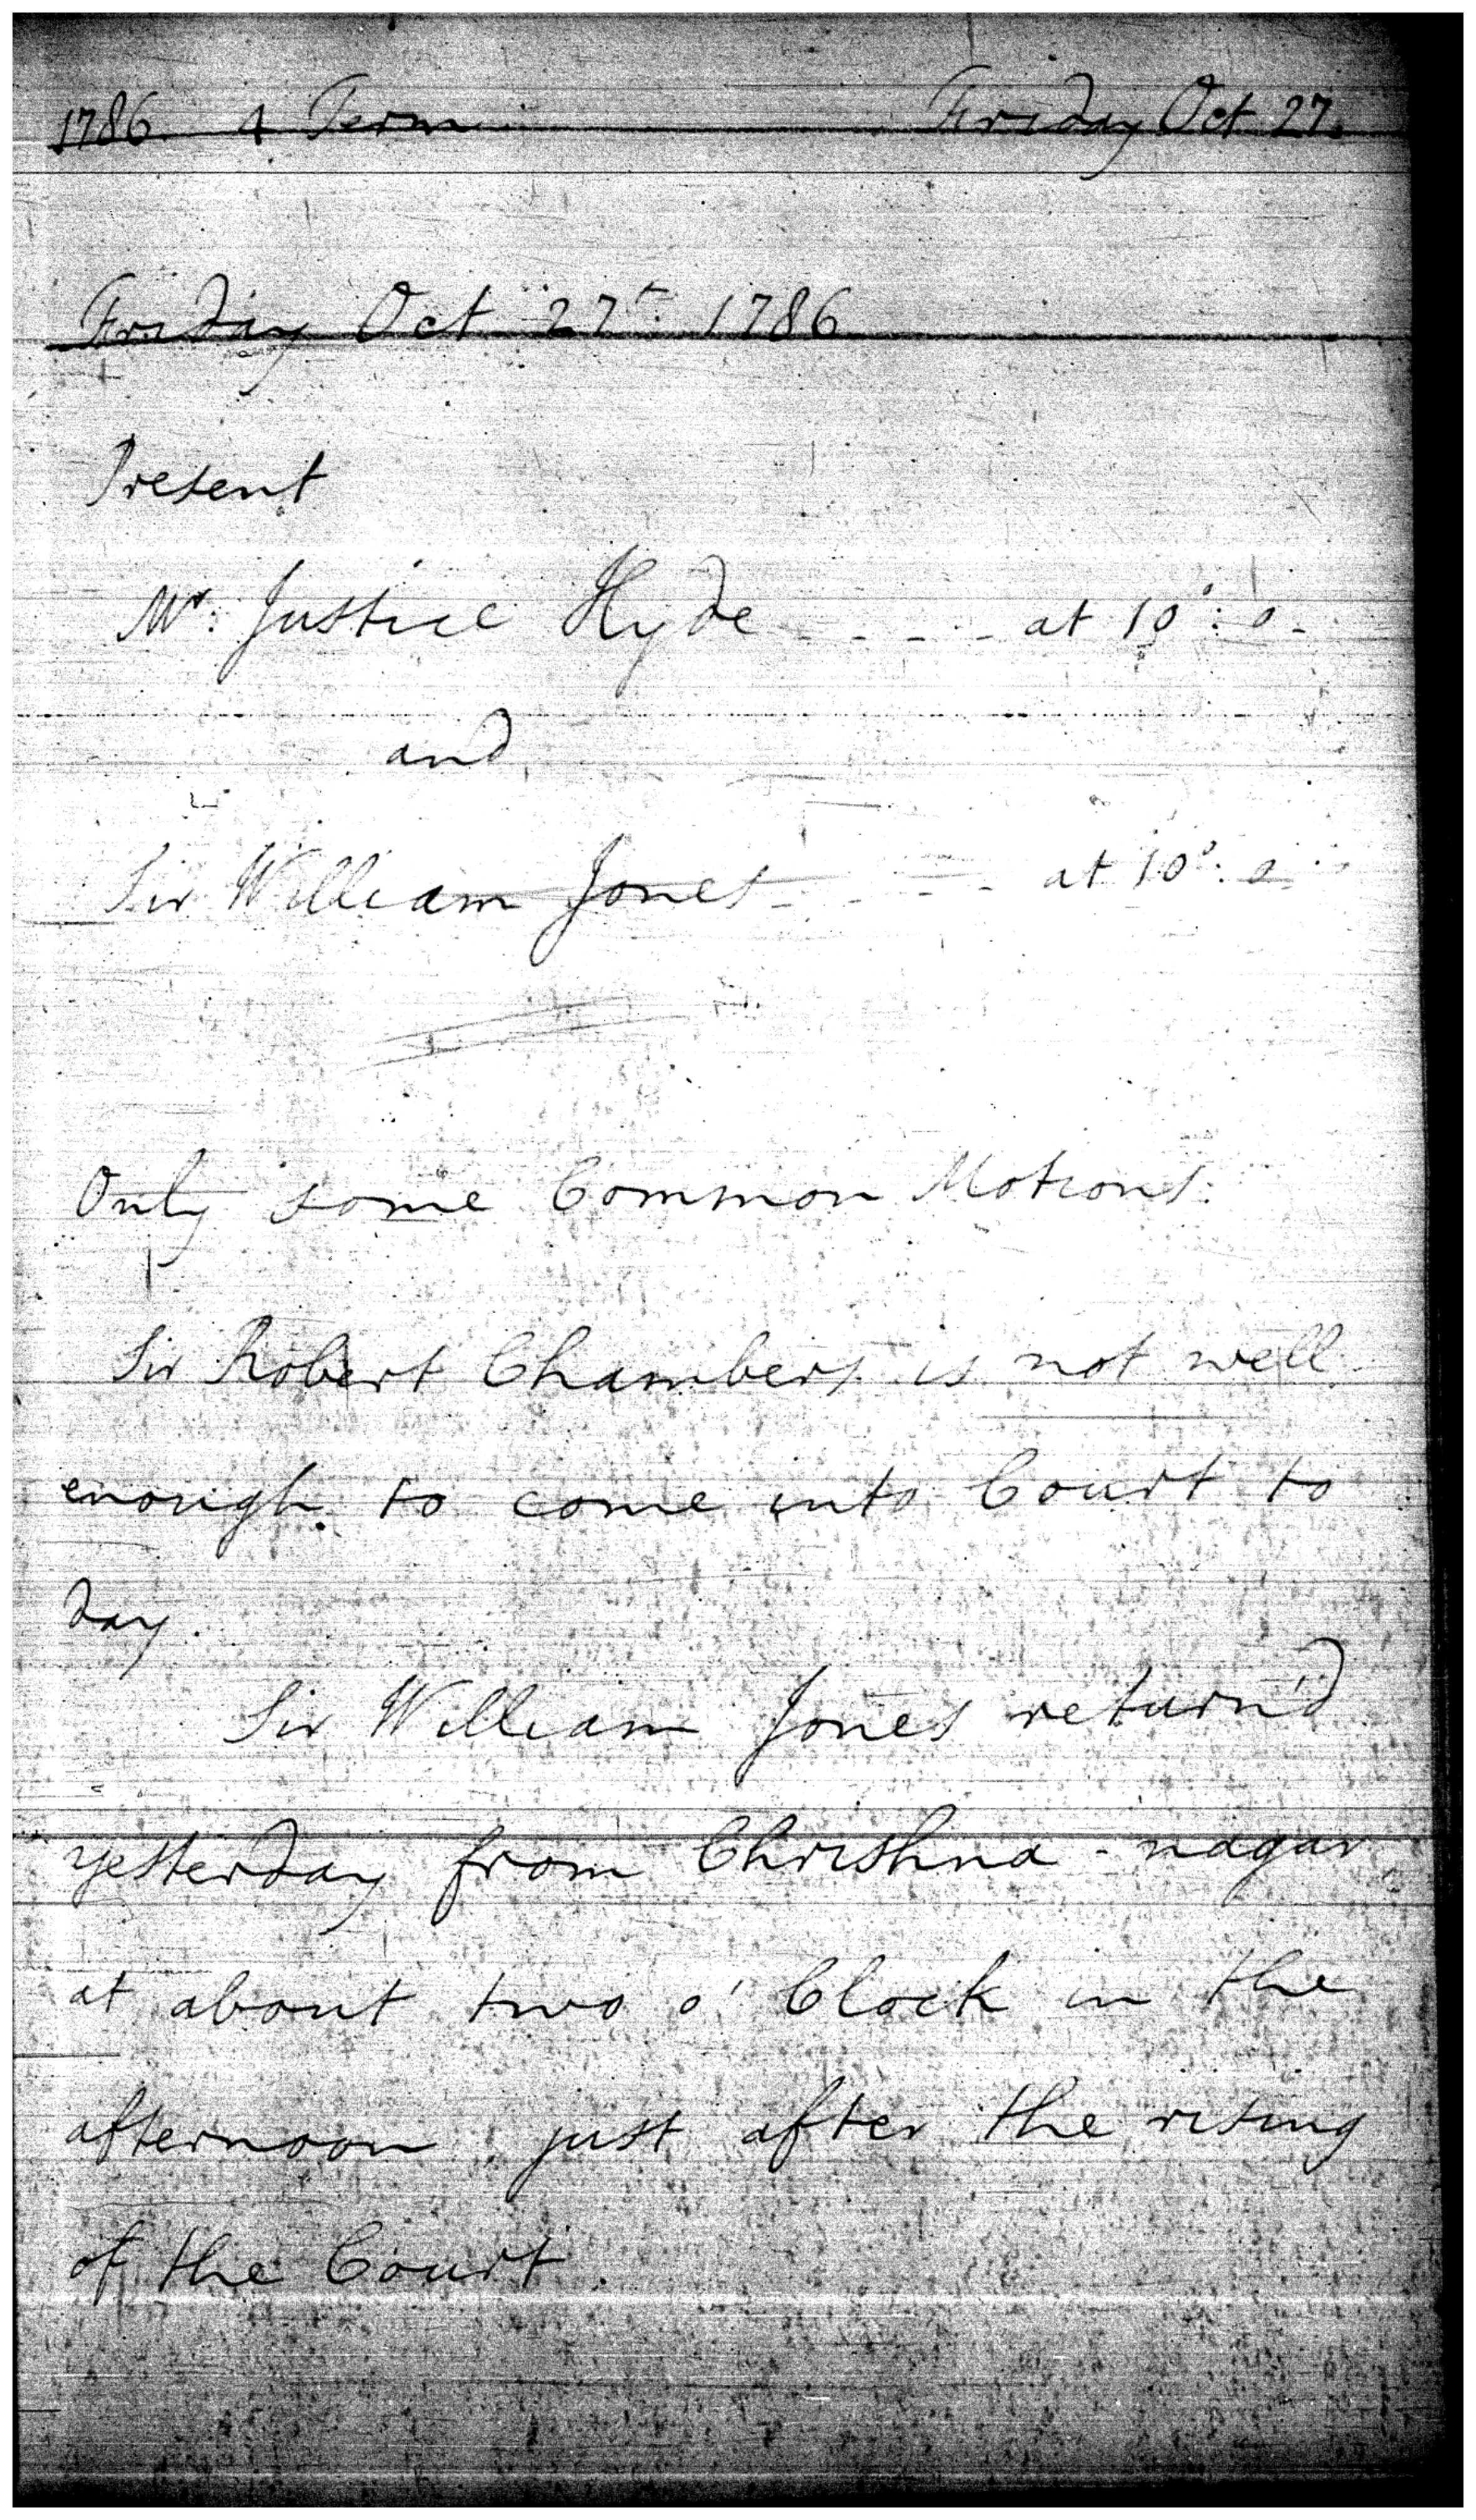 1786. 4 Term Friday Oct 27.
Friday Oct 27th. 1786
Present
Mr. Justice Hyde - - - - at 10°: 0.
and
Sir William Jones - - - - at 10°: 0
Only some Common Motions.
Sir Robert Chambers is not well
enough to come into Court to
day.
Sir William Jones return'd
yesterday from Chrishna - nagar
at about two o' Clock in the
afternoon just after the rising
of the Court.